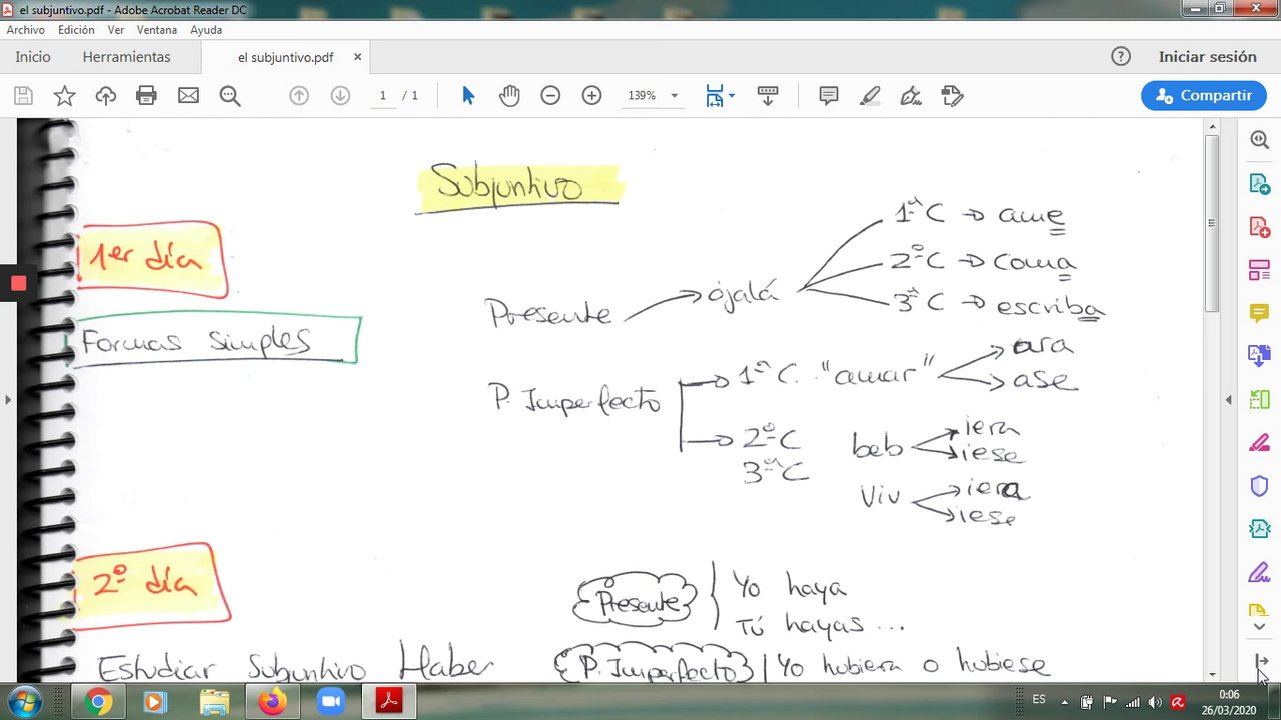 el subjuntivo.pdf - Adobe Acrobat Reader DC
Archivo Edición Ver Ventana Ayuda
Inicio Herramientas el subjuntivo.pdf × Iniciar sesión
1 / 1 139% Compartir
Subjuntivo
1er día
Formas simples
Presente → ójalá
1ª C → ame
2º C → coma
3ª C → escriba
P. Imperfecto
1ª C. "amar" → ara
→ ase
2º C
3ª C
beb → iera
→ iese
Viv → iera
→ iese
2º día
Presente
Yo haya
Tú hayas ...
Estudiar Subjuntivo Haber P. Imperfecto | Yo hubiera o hubiese
ES 0:06
26/03/2020